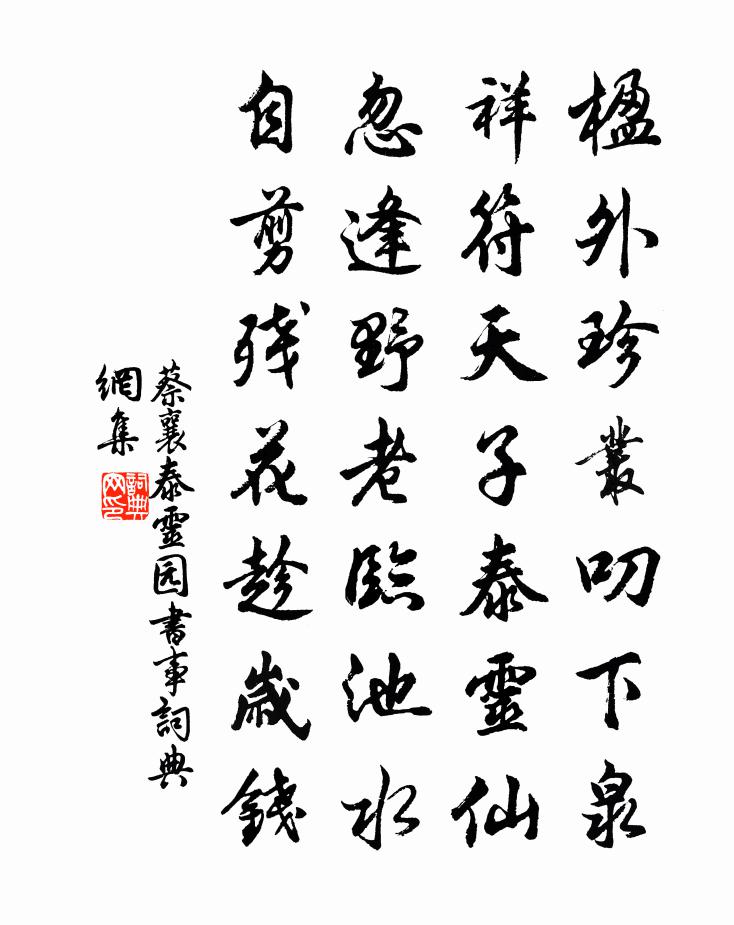 楹外珍叢叨下泉
祥符天子泰靈仙
忽逢野老臨池水
自剪残花趁歲錢
蔡襄泰靈园書事詞典
網集
詞典
网印